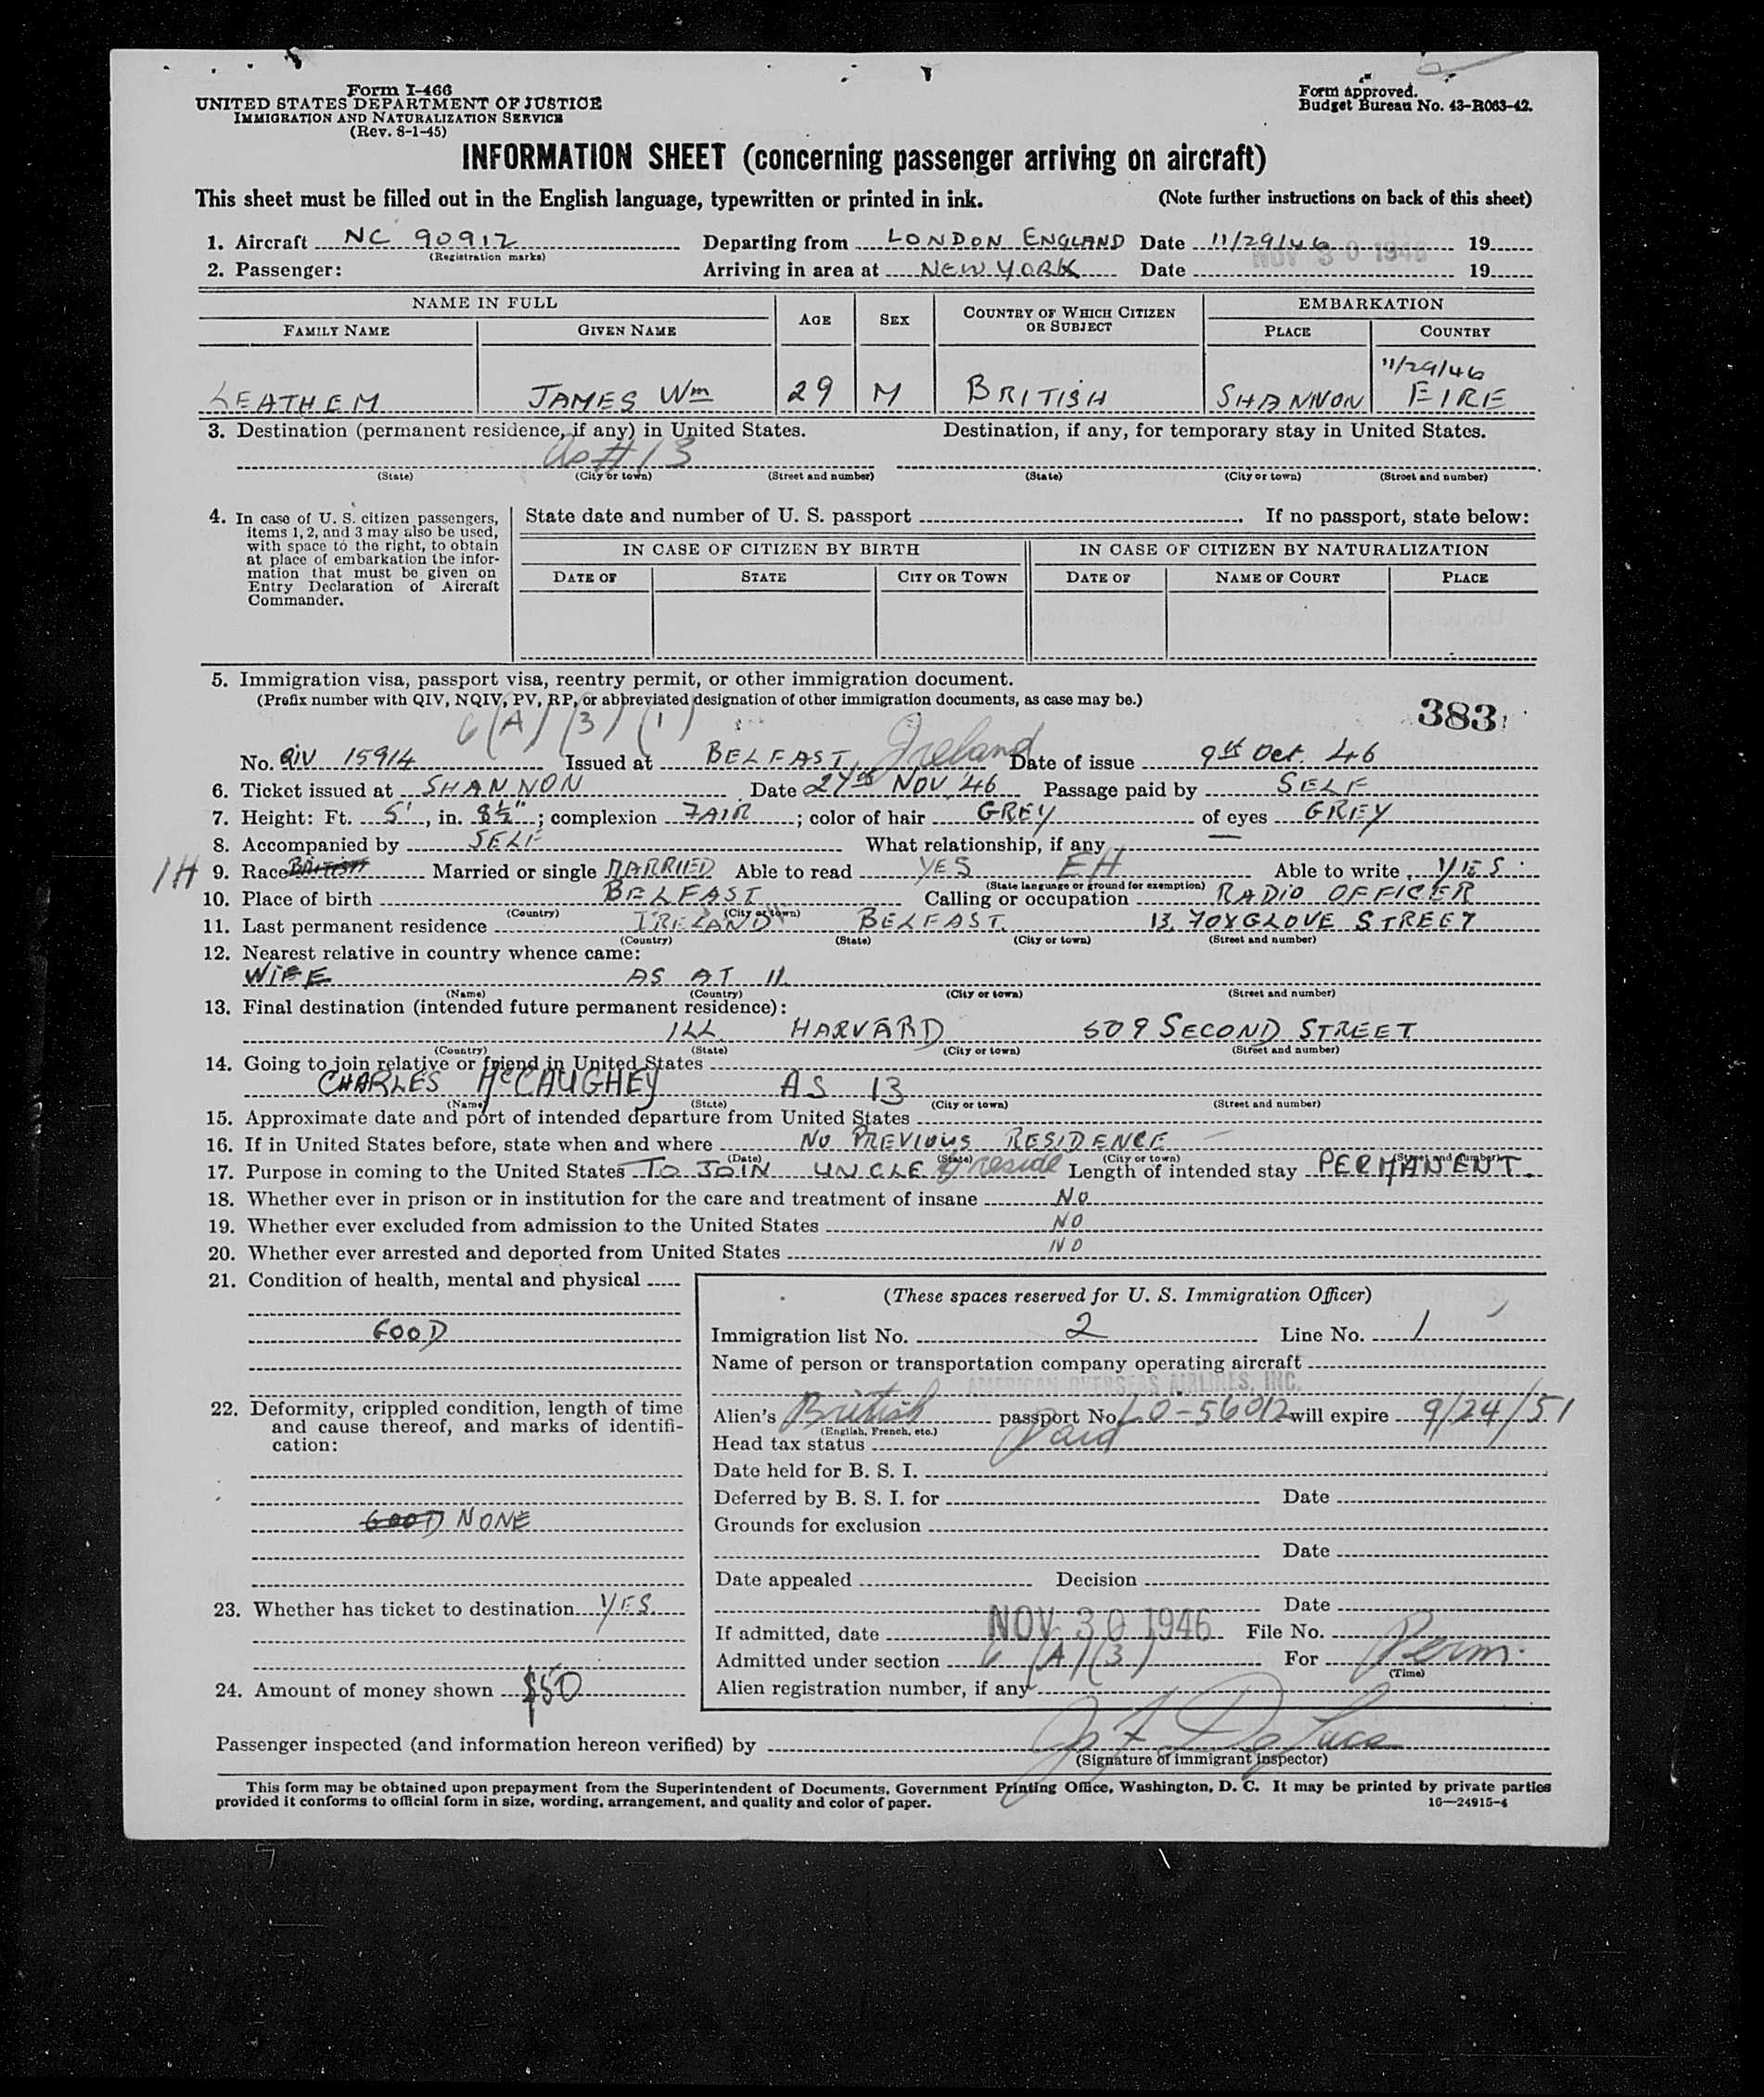 Form I-466
UNITED STATES DEPARTMENT OF JUSTICE
IMMIGRATION AND NATURALIZATION SERVICE
(Rev. 8-1-45)
Form approved.
Budget Bureau No. 43-R063-42.
INFORMATION SHEET (concerning passenger arriving on aircraft)
This sheet must be filled out in the English language, typewritten or printed in ink. (Note further instructions on back of this sheet)
1. Aircraft NC 90912 Departing from LONDON ENGLAND Date 11/29/46 19
(Registration marks)
NOV 30 1946
2. Passenger: Arriving in area at NEW YORK Date 19
NAME IN FULL AGE SEX COUNTRY OF WHICH CITIZEN OR SUBJECT EMBARKATION
FAMILY NAME GIVEN NAME PLACE COUNTRY
11/29/46
LEATHEM JAMES Wm 29 M BRITISH SHANNON EIRE
3. Destination (permanent residence, if any) in United States. Destination, if any, for temporary stay in United States.
As #13
(State) (City or town) (Street and number) (State) (City or town) (Street and number)
4. In case of U. S. citizen passengers, items 1, 2, and 3 may also be used, with space to the right, to obtain at place of embarkation the information that must be given on Entry Declaration of Aircraft Commander.
State date and number of U. S. passport . If no passport, state below:
IN CASE OF CITIZEN BY BIRTH IN CASE OF CITIZEN BY NATURALIZATION
DATE OF STATE CITY OR TOWN DATE OF NAME OF COURT PLACE
5. Immigration visa, passport visa, reentry permit, or other immigration document.
(Prefix number with QIV, NQIV, PV, RP, or abbreviated designation of other immigration documents, as case may be.)
383
6 (A) (3) (1)
No. QIV 15914 Issued at BELFAST, Ireland Date of issue 9th Oct. 46
6. Ticket issued at SHANNON Date 27th NOV '46 Passage paid by SELF
7. Height: Ft. 5', in. 8½"; complexion FAIR; color of hair GREY of eyes GREY
8. Accompanied by SELF What relationship, if any —
1H 9. Race BRITISH Married or single MARRIED Able to read YES EH Able to write, YES
(State language or ground for exemption)
10. Place of birth BELFAST Calling or occupation RADIO OFFICER
(Country) (City or town)
11. Last permanent residence IRELAND BELFAST. 13, FOXGLOVE STREET
(Country) (State) (City or town) (Street and number)
12. Nearest relative in country whence came:
WIFE AS AT 11.
(Name) (Country) (City or town) (Street and number)
13. Final destination (intended future permanent residence):
ILL. HARVARD 509 SECOND STREET
(Country) (State) (City or town) (Street and number)
14. Going to join relative or friend in United States
CHARLES McCAUGHEY AS 13
(Name) (State) (City or town) (Street and number)
15. Approximate date and port of intended departure from United States
16. If in United States before, state when and where NO PREVIOUS RESIDENCE —
(Date) (State) (City or town) (Street and number)
17. Purpose in coming to the United States TO JOIN UNCLE & reside Length of intended stay PERMANENT.
18. Whether ever in prison or in institution for the care and treatment of insane NO
19. Whether ever excluded from admission to the United States NO
20. Whether ever arrested and deported from United States NO
21. Condition of health, mental and physical
GOOD
22. Deformity, crippled condition, length of time and cause thereof, and marks of identification:
GOOD NONE
23. Whether has ticket to destination YES.
24. Amount of money shown $50
(These spaces reserved for U. S. Immigration Officer)
Immigration list No. 2 Line No. 1
Name of person or transportation company operating aircraft
AMERICAN OVERSEAS AIRLINES, INC.
Alien's British passport No. LO-56012 will expire 9/24/51
(English, French, etc.)
Head tax status Paid
Date held for B. S. I.
Deferred by B. S. I. for Date
Grounds for exclusion
Date
Date appealed Decision
Date
If admitted, date NOV 30 1946 File No.
Admitted under section 6 (A) (3) For Perm.
(Time)
Alien registration number, if any
Passenger inspected (and information hereon verified) by
(Signature of immigrant inspector)
This form may be obtained upon prepayment from the Superintendent of Documents, Government Printing Office, Washington, D. C. It may be printed by private parties
provided it conforms to official form in size, wording, arrangement, and quality and color of paper. 16—24915-4